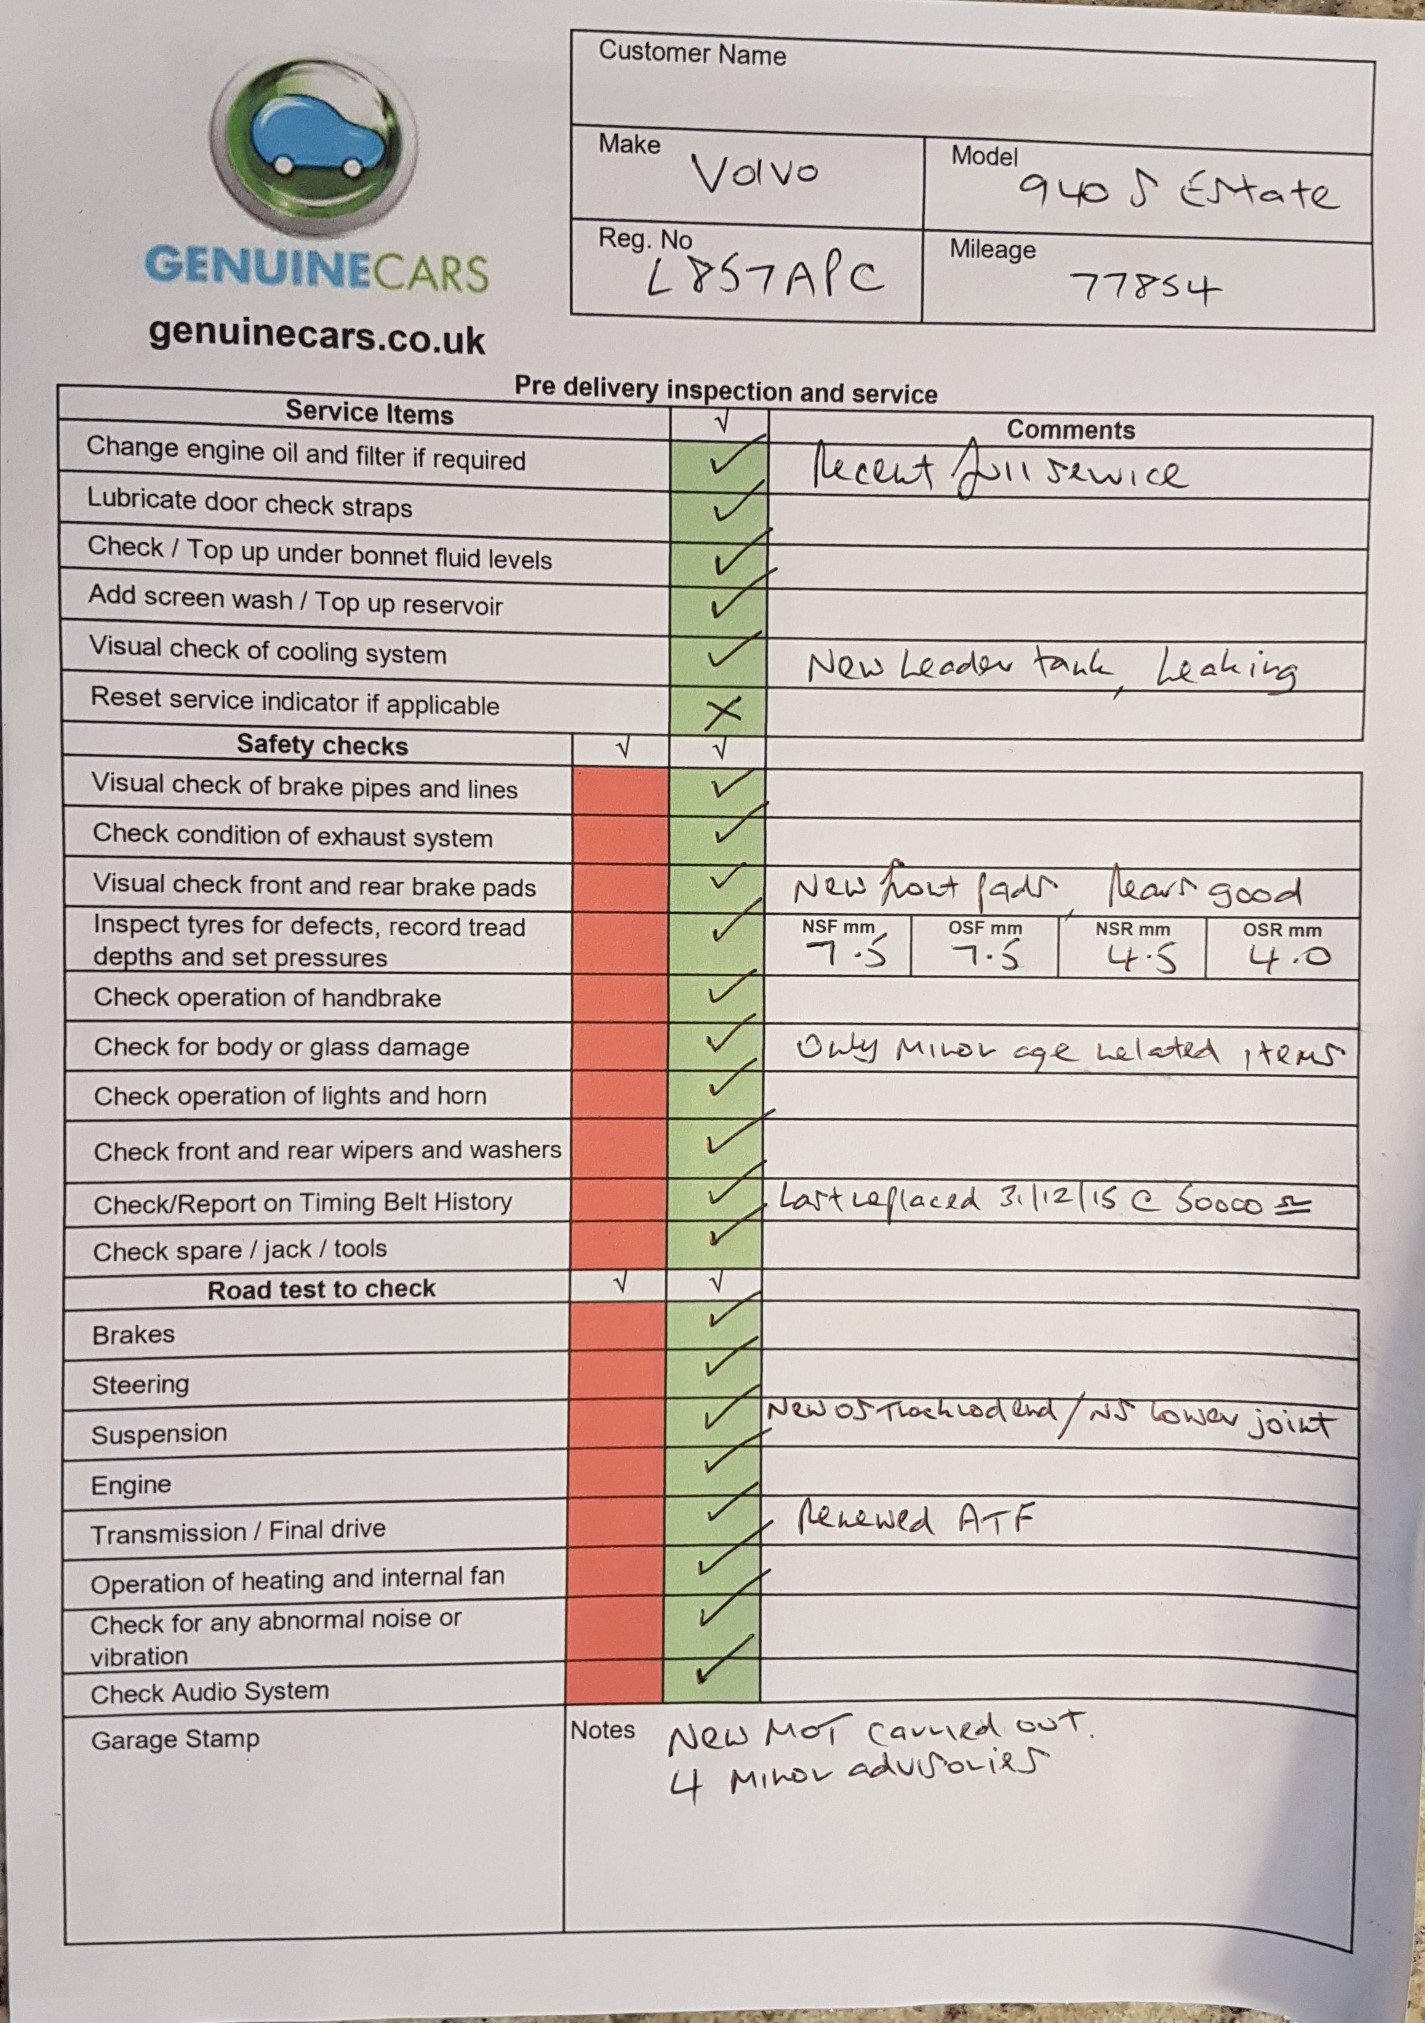 Customer Name
Make Volvo
Model 940 S Estate
Reg. No L857APC
Mileage 77854
GENUINECARS
genuinecars.co.uk
Pre delivery inspection and service
Service Items √ Comments
Change engine oil and filter if required ✓ Recent full service
Lubricate door check straps ✓
Check / Top up under bonnet fluid levels ✓
Add screen wash / Top up reservoir ✓
Visual check of cooling system ✓ New header tank, Leaking
Reset service indicator if applicable X
Safety checks √ √
Visual check of brake pipes and lines ✓
Check condition of exhaust system ✓
Visual check front and rear brake pads ✓ New front pads, Rears good
Inspect tyres for defects, record tread
depths and set pressures ✓
NSF mm OSF mm NSR mm OSR mm
7.5 7.5 4.5 4.0
Check operation of handbrake ✓
Check for body or glass damage ✓ Only Minor age related items
Check operation of lights and horn ✓
Check front and rear wipers and washers ✓
Check/Report on Timing Belt History ✓ Last replaced 31/12/15 @ 50000
Check spare / jack / tools ✓
Road test to check √ √
Brakes ✓
Steering ✓
Suspension ✓ New OS Track rod end / NS Lower joint
Engine ✓
Transmission / Final drive ✓ Renewed ATF
Operation of heating and internal fan ✓
Check for any abnormal noise or
vibration ✓
Check Audio System ✓
Garage Stamp
Notes New MOT carried out.
4 Minor advisories